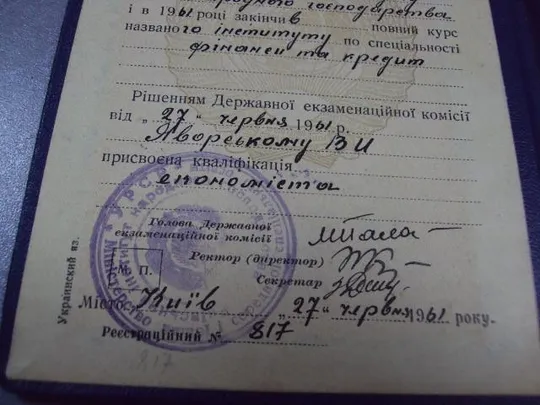 народного господарства
і в 1961 році закінчив повний курс
названого інституту по спеціальності
фінанси та кредит
Рішенням Державної екзаменаційної комісії
від „27" червня 1961 р.
Яворському В И
присвоєна кваліфікація
економіста
Голова Державної
екзаменаційної комісії
Ректор (директор)
М. П.
Секретар
Місто Київ „27" червня 1961 року.
Реєстраційний № 817
Украинский яз.
817